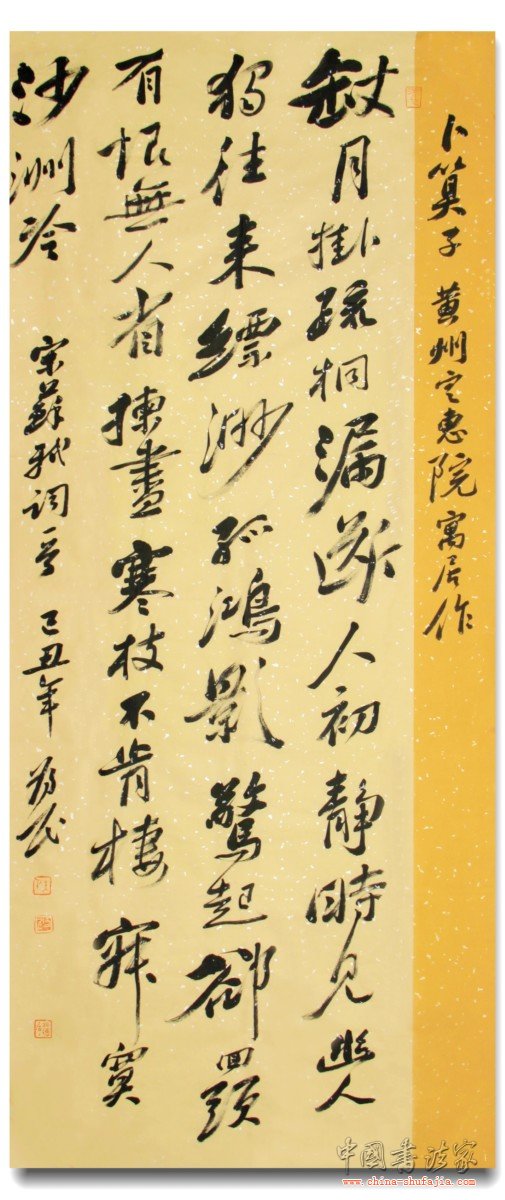 卜算子 黄州定惠院寓居作
缺月掛疏桐漏斷人初靜時見幽人
獨往来縹渺孤鴻影驚起卻回頭
有恨無人省揀盡寒枝不肯棲寂寞
沙洲冷
宋蘇軾詞一首 己丑年
中國書法家
www.china-shufajia.com